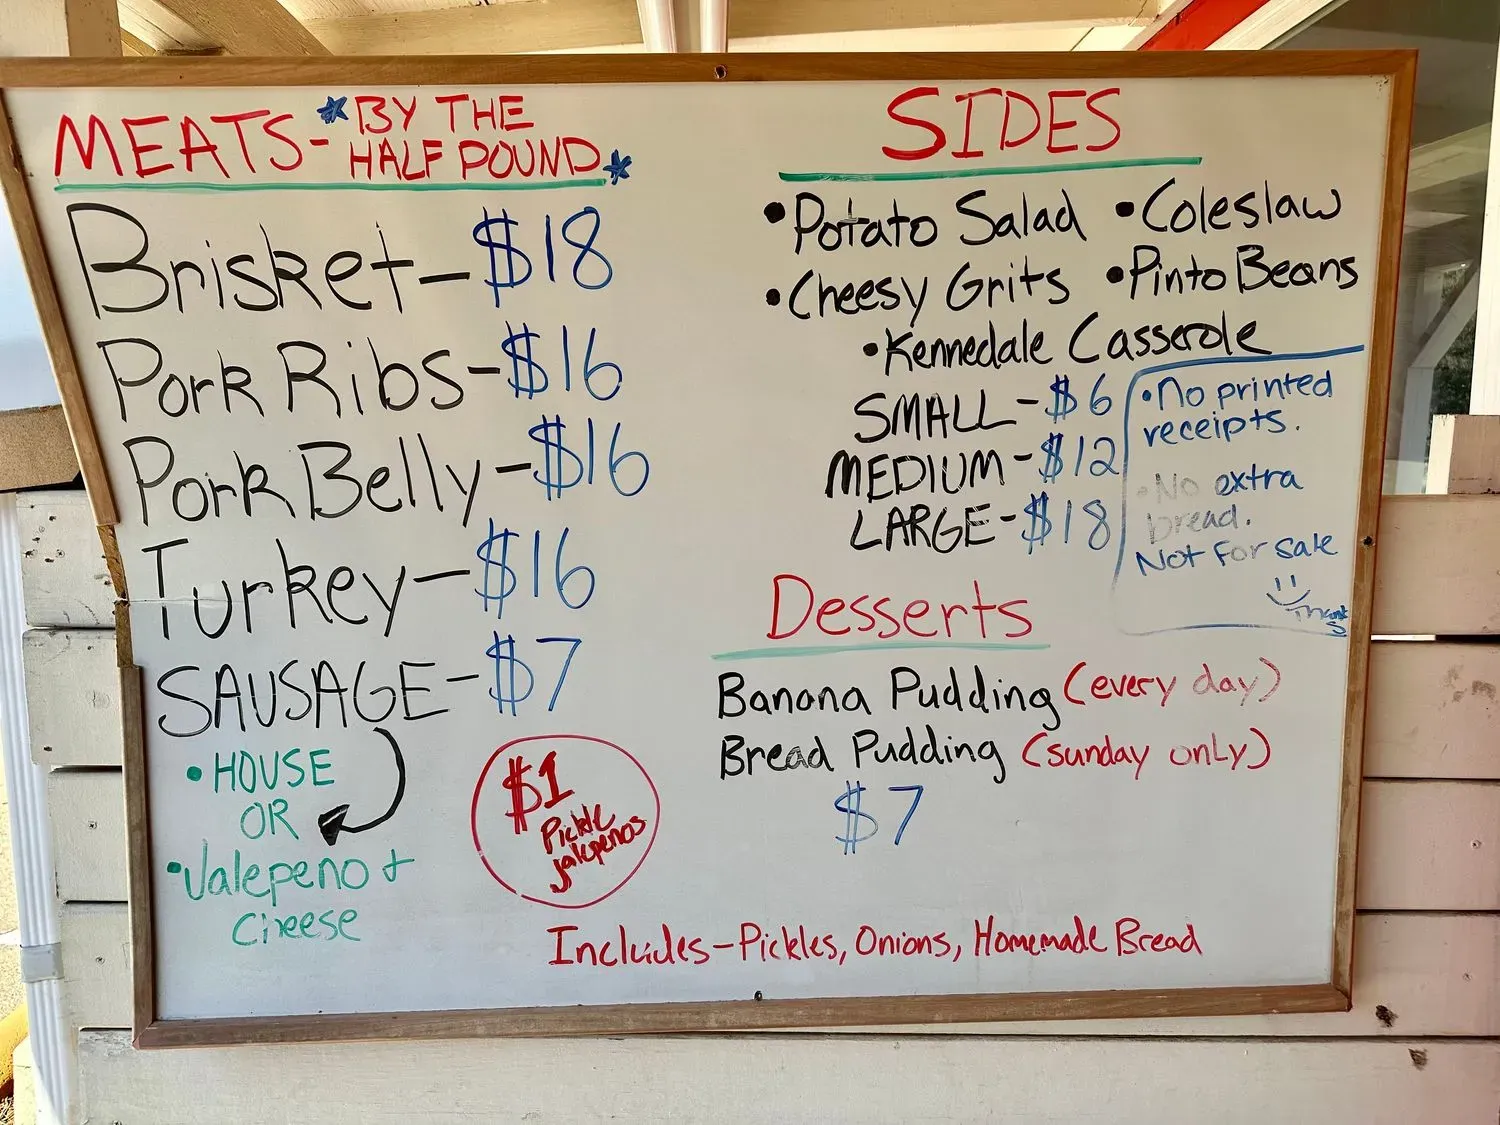 MEATS- *BY THE
HALF POUND*
Brisket-$18
Pork Ribs-$16
Pork Belly-$16
Turkey-$16
SAUSAGE-$7
• HOUSE
OR
• Jalepeno +
Cheese
$1
Pickle
jalepenos
SIDES
• Potato Salad • Coleslaw
• Cheesy Grits • Pinto Beans
• Kennedale Casserole
SMALL-$6
MEDIUM-$12
LARGE-$18
• No printed
receipts.
• No extra
bread.
Not for sale
Thanks
Desserts
Banana Pudding (every day)
Bread Pudding (sunday only)
$7
Includes-Pickles, Onions, Homemade Bread